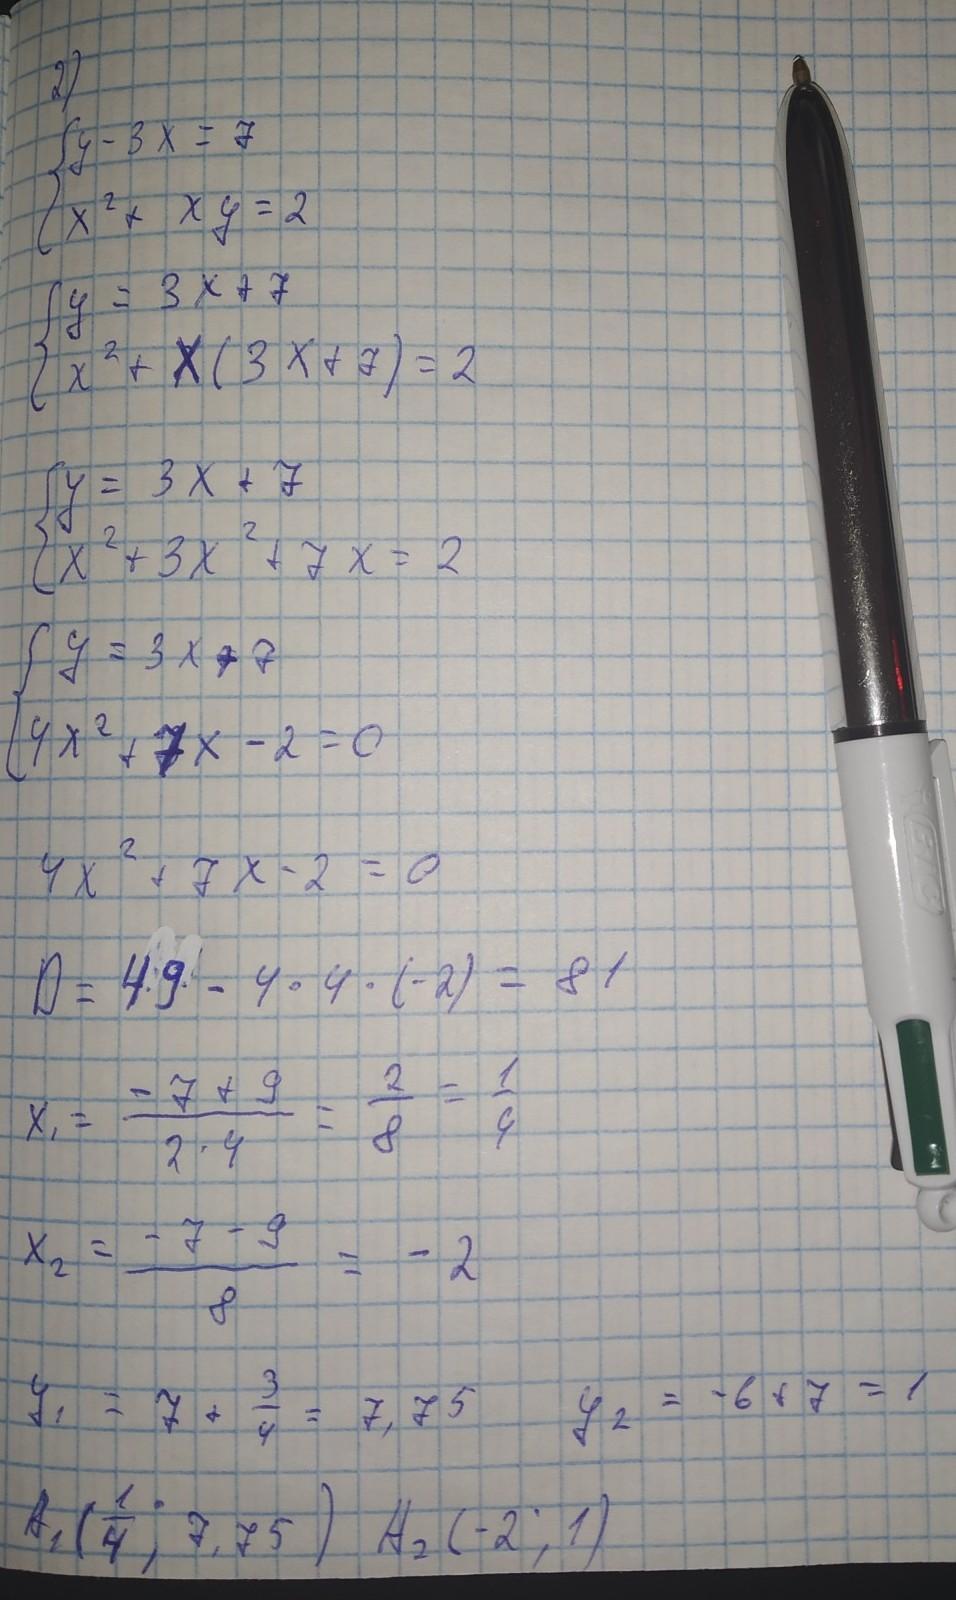 2)
y - 3x = 7
x² + xy = 2
y = 3x + 7
x² + x(3x + 7) = 2
y = 3x + 7
x² + 3x² + 7x = 2
y = 3x + 7
4x² + 7x - 2 = 0
4x² + 7x - 2 = 0
D = 49 - 4·4·(-2) = 81
x₁ = (-7 + 9)/(2·4) = 2/8 = 1/4
x₂ = (-7 - 9)/8 = -2
y₁ = 7 + 3/4 = 7,75 y₂ = -6 + 7 = 1
A₁(1/4; 7,75) A₂(-2; 1)
BIC